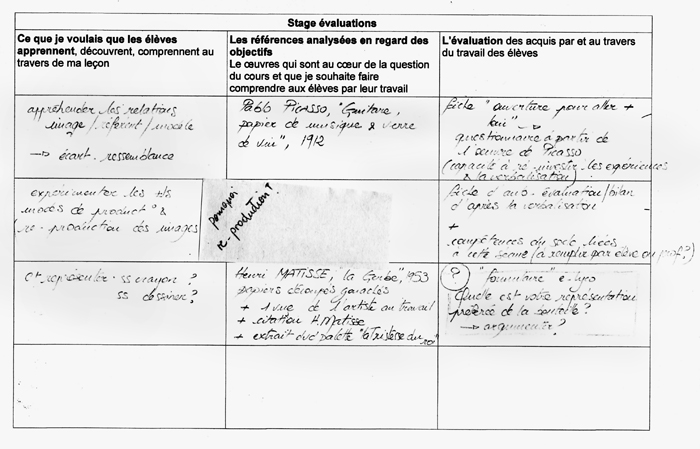 Stage évaluations
Ce que je voulais que les élèves
apprennent, découvrent, comprennent au
travers de ma leçon
Les références analysées en regard des
objectifs
Le œuvres qui sont au cœur de la question
du cours et que je souhaite faire
comprendre aux élèves par leur travail
L'évaluation des acquis par et au travers
du travail des élèves
appréhender les relations
image / référent / modèle
→ écart. ressemblance
Pablo PICASSO, "Guitare,
papier de musique & verre
de vin", 1912
fiche "ouverture pour aller +
loin" →
questionnaire à partir de
l'œuvre de Picasso
(capacité à ré-investir les expériences
& la verbalisation)
expérimenter les
modes de product° &
(re-production des images
pourquoi
re-production?
fiche d'auto-évaluation/bilan
d'après la verbalisation
+
compétences du socle liées
à cette séance (à remplir par élève ou prof?)
et représenter ss crayon?
ss dessiner?
Henri MATISSE, la Gerbe", 1953
papiers découpés gouachés
+ 1 vue de l'artiste au travail
+ citation H. Matisse
+ extrait palette "la tristesse du roi"
? "formulaire"
Quelle est votre représentation
préférée de la
→ argumenter?